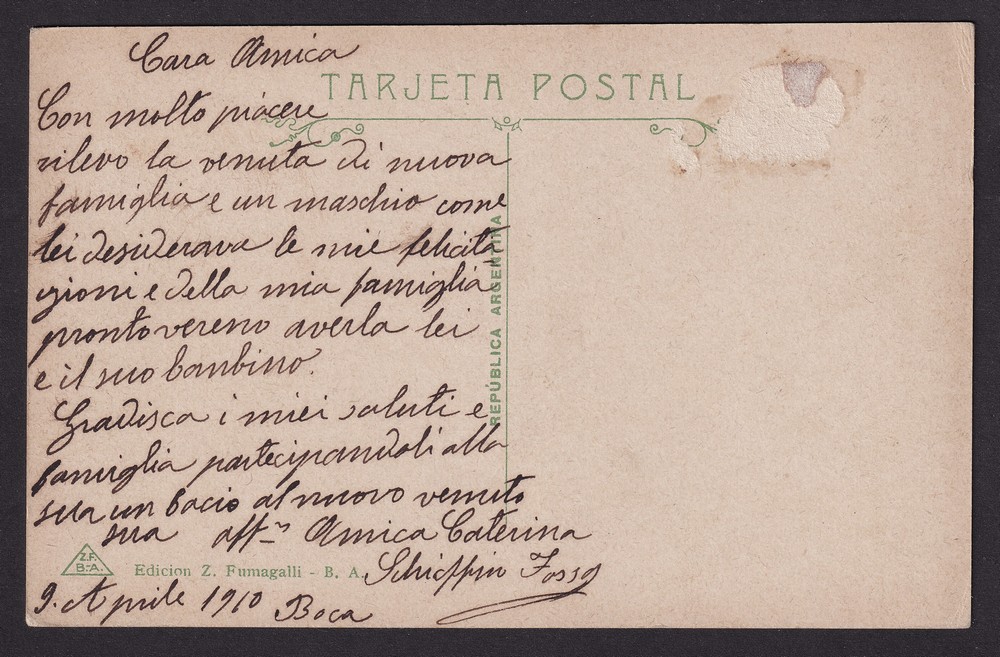 Cara Amica
TARJETA POSTAL
Con molto piacere
rilevo la venuta di nuova
famiglia e un maschio come
lei desiderava le mie felicita
zioni e della mia famiglia
pronto vereno averla lei
e il suo bambino.
Gradisca i miei saluti e
famiglia partecipandoli alla
sua un bacio al nuovo venuto
sua aff Amica Caterina
REPÚBLICA ARGENTINA
Z.F.
B.-A.
Edicion Z. Fumagalli - B. A.
9. Aprile 1910 Boca